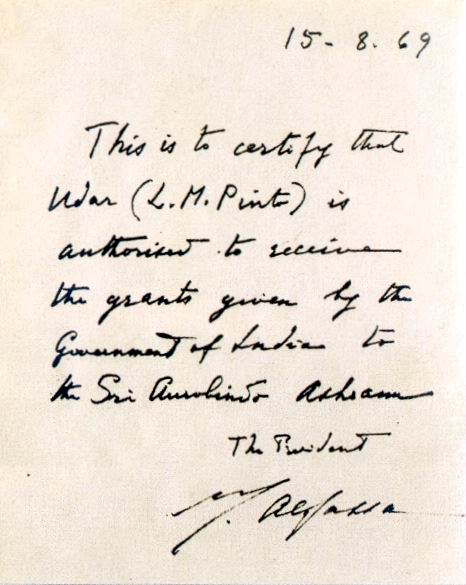 15-8.69
This is to certify that
Udar (L.M.Pinto) is
authorised to receive
the grants given by the
Government of India to
the Sri Aurobindo Ashram
The President
M. Alfassa